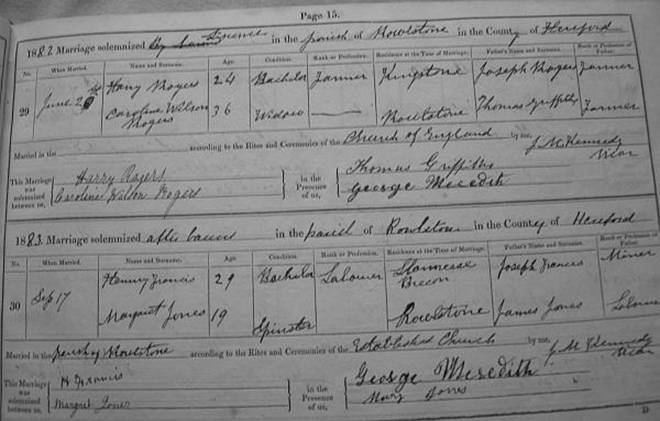 Page 15.
1882 Marriage solemnized By Licence in the parish of Rowlstone in the County of Hereford
No. When Married. Name and Surname. Age Condition. Rank or Profession. Residence at the Time of Marriage. Father's Name and Surname. Rank or Profession of Father.
29 June 20th Harry Rogers 24 Bachelor Farmer Kingstone Joseph Rogers Farmer
Caroline Wilson Rogers 36 Widow — Rowlstone Thomas Griffiths Farmer
Married in the according to the Rites and Ceremonies of the Church of England by me, J. McKennedy Vicar
This Marriage was solemnized between us, Harry Rogers Caroline Wilson Rogers in the Presence of us, Thomas Griffiths George Meredith
1883. Marriage solemnized after banns in the parish of Rowlstone in the County of Hereford
No. When Married. Name and Surname. Age Condition. Rank or Profession. Residence at the Time of Marriage. Father's Name and Surname. Rank or Profession of Father.
30 Sep 17 Henry Francis 29 Bachelor Labourer Brecon Joseph Francis Miner
Margaret Jones 19 Spinster Rowlstone James Jones Labourer
Married in the parish of Rowlstone according to the Rites and Ceremonies of the Established Church by me, J M Kennedy Vicar
This Marriage was solemnized between us, H Francis Margret Jones in the Presence of us, George Meredith Mary Jones